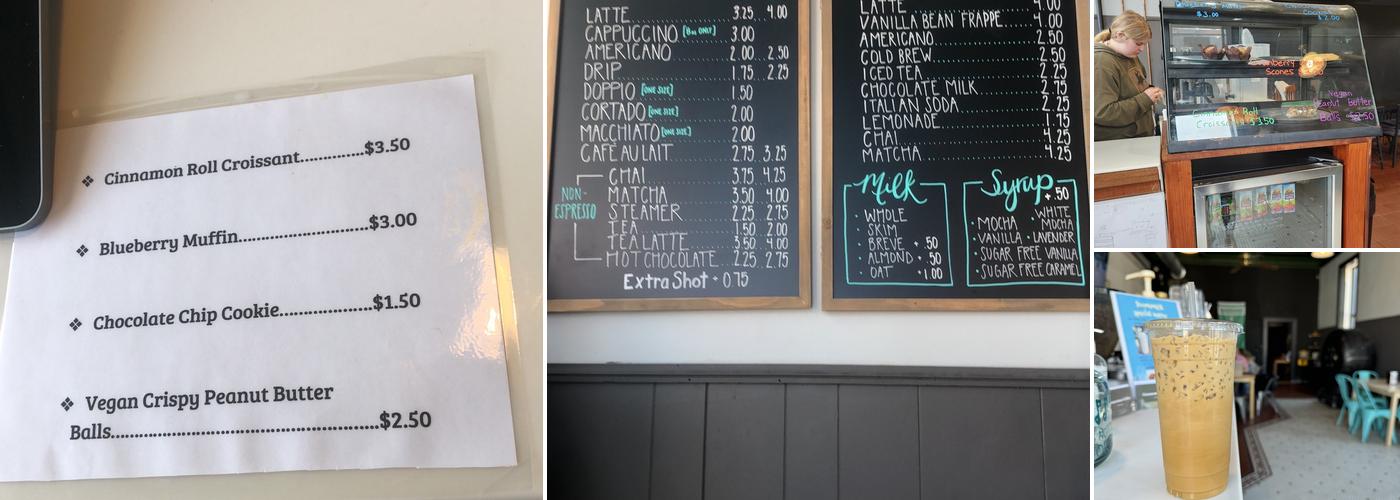 ❖ Cinnamon Roll Croissant.............$3.50
❖ Blueberry Muffin..........................$3.00
❖ Chocolate Chip Cookie.................$1.50
❖ Vegan Crispy Peanut Butter
Balls.....................................................$2.50
LATTE 3.25 4.00
CAPPUCCINO [8oz ONLY] 3.00
AMERICANO 2.00 2.50
DRIP 1.75 2.25
DOPPIO [ONE SIZE] 1.50
CORTADO [ONE SIZE] 2.00
MACCHIATO [ONE SIZE] 2.00
CAFE AU LAIT 2.75 3.25
NON-
ESPRESSO
CHAI 3.75 4.25
MATCHA 3.50 4.00
STEAMER 2.25 2.75
TEA 1.50 2.00
TEA LATTE 3.50 4.00
HOT CHOCOLATE 2.25 2.75
Extra Shot + 0.75
LATTE 4.00
VANILLA BEAN FRAPPE 4.00
AMERICANO 2.50
COLD BREW 2.50
ICED TEA 2.25
CHOCOLATE MILK 2.75
ITALIAN SODA 2.25
LEMONADE 1.75
CHAI 4.25
MATCHA 4.25
Milk
• WHOLE
• SKIM
• BREVE + .50
• ALMOND + .50
• OAT + 1.00
Syrup
+ .50
• MOCHA • WHITE MOCHA
• VANILLA • LAVENDER
• SUGAR FREE VANILLA
• SUGAR FREE CARAMEL
$3.00
$2.00
Scones
Vegan
Peanut Butter
Balls $2.50
Cinnamon Roll
Croissant $3.50
special menu